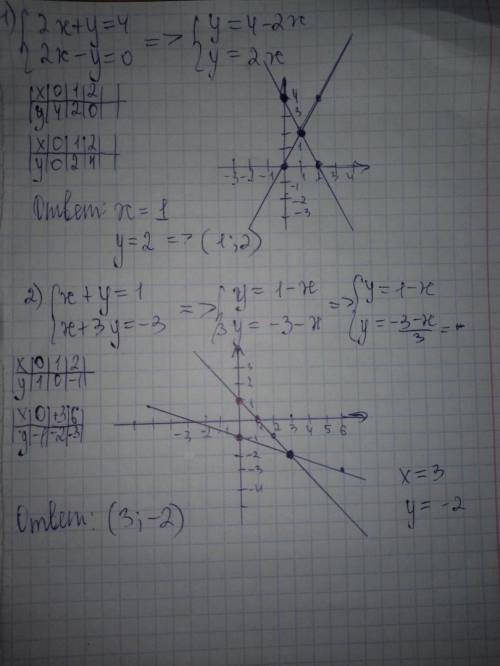 1) { 2x+y=4 => { y=4-2x
{ 2x-y=0 { y=2x
x|0|1|2|
y|4|2|0|
x|0|1|2|
y|0|2|4|
4
3
1
-3 -2 -1 1 3 4
-1
-2
-3
Ответ: x=1
y=2 => (1;2)
2) { x+y=1 => { y=1-x => { y=1-x
{ x+3y=-3 { 3y=-3-x { y=(-3-x)/3 =
x|0|1|2
y|1|0|-1
x|0|3|6
y|-1|-2|-3
3
2
1
-3 -2 2 3 4 5 6
-1
-2
-3
-4
x=3
y=-2
Ответ: (3;-2)